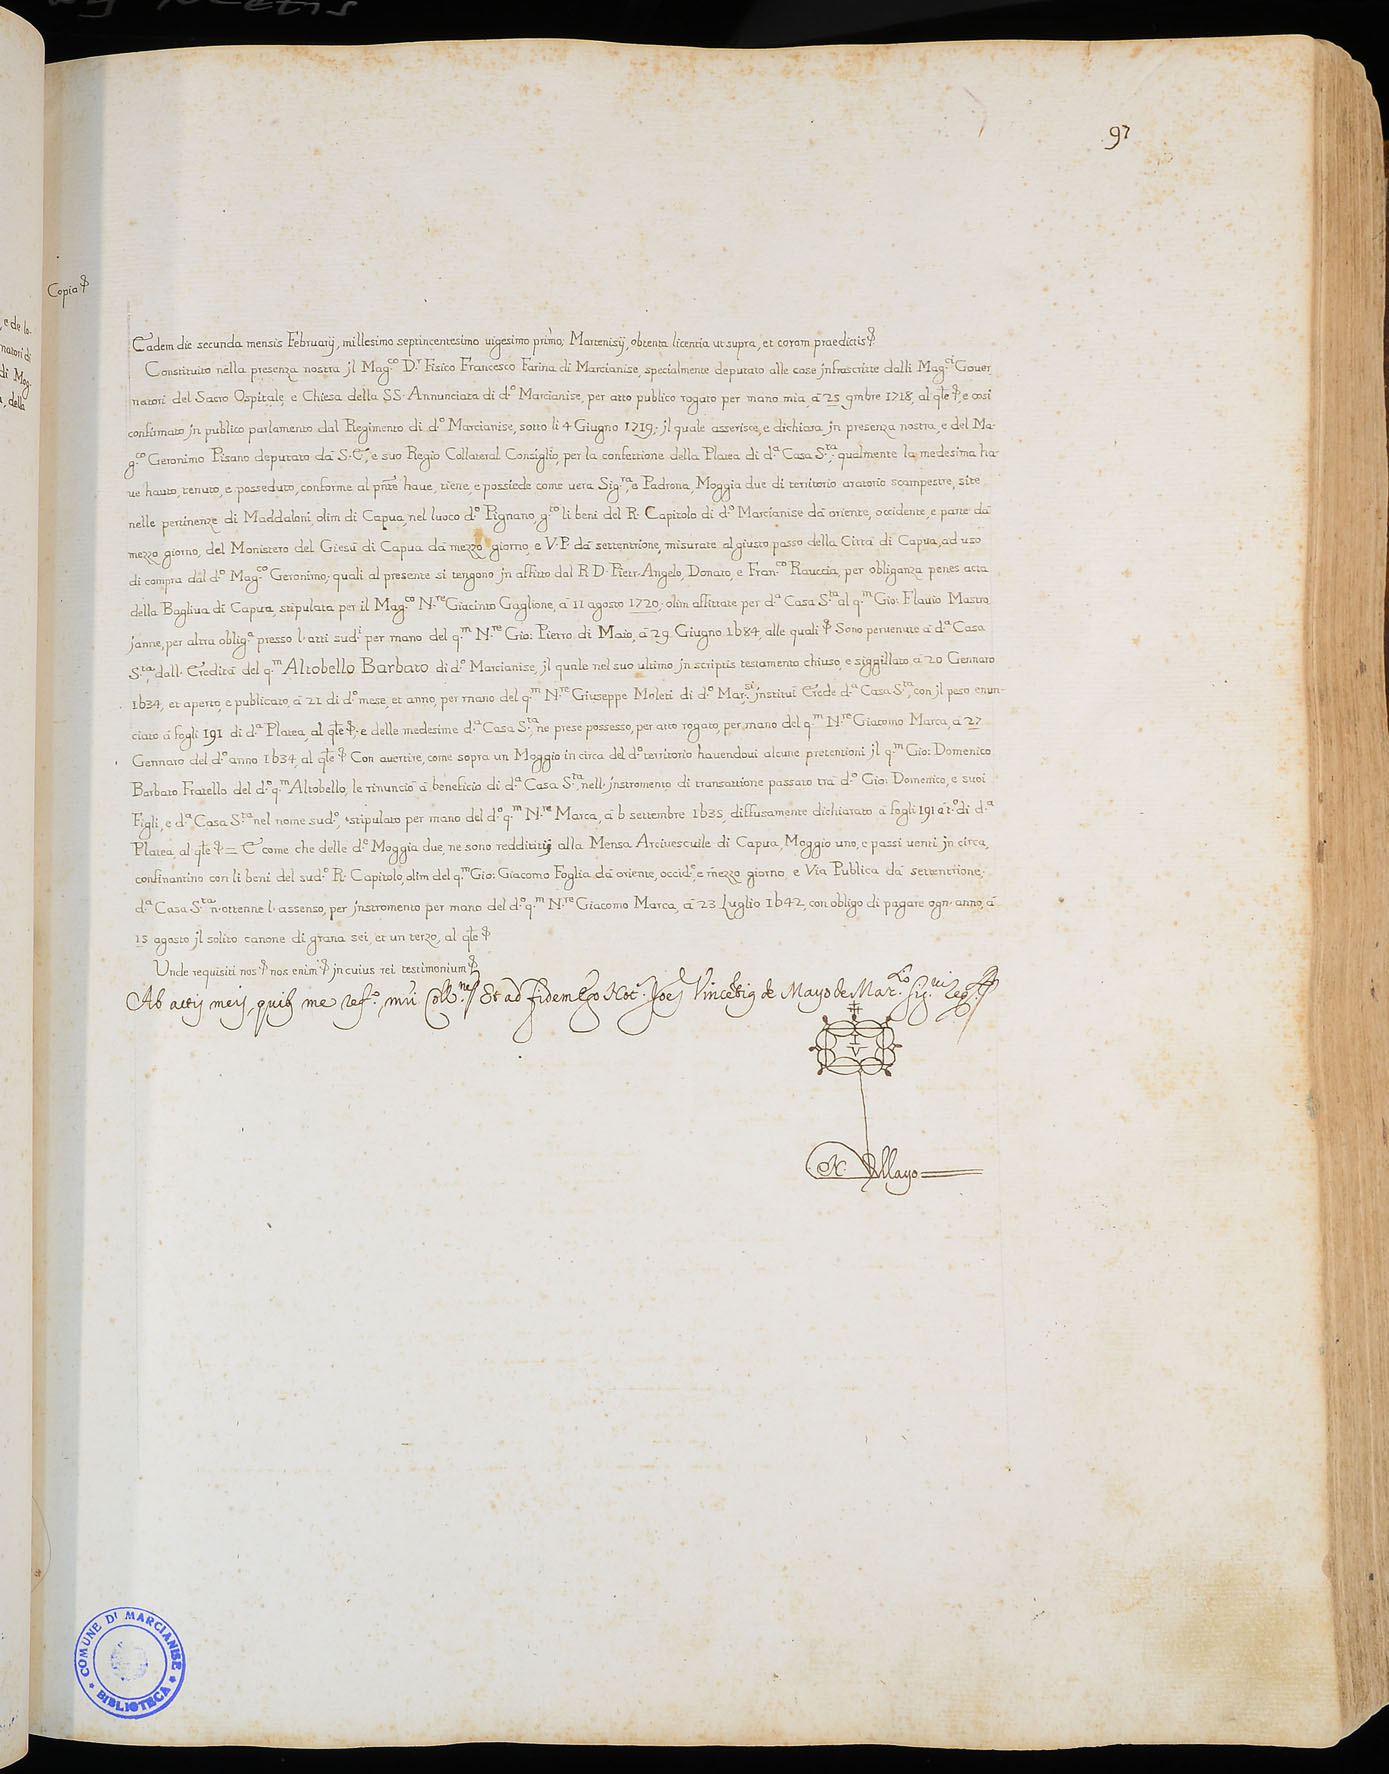 97
Copia
, e de lo-
natori di
di Mag-
, della
Eadem die secunda mensis Februarij, millesimo septincentesimo uigesimo primo; Martenisij, obtenta licentia ut supra, et coram praedictis &
Constituito nella presenza nostra jl Mag.co D.r Fisico Francesco Farina di Marcianise, specialmente deputato alle cose jnfrascritte dalli Mag.ci Gouer
natori del Sacro Ospitale, e Chiesa della SS. Annunciata di d.o Marcianise, per atto publico rogato per mano mia, à 25 9mbre 1718, al qle &, e così
confirmato jn publico parlamento dal Regimento di d.o Marcianise, sotto li 4 Giugno 1719; jl quale asserisce, e dichiara jn presenza nostra, e del Ma-
g.co Geronimo Pisano deputato dà S.E., e suo Regio Collateral Consiglio, per la confettione della Platea di d.a Casa S.ta, qualmente la medesima ha-
ue hauto, tenuto, e posseduto, conforme al pnte haue, tiene, e possiede come uera Sig.ra, e Padrona, Moggia due di territorio aratorio scampestre, site
nelle pertinenze di Maddaloni, olim di Capua, nel luoco d.o Pignano, g.to li beni del R. Capitolo di d.o Marcianise dà oriente, occidente, e parte dà
mezzo giorno, del Monistero del Giesù di Capua dà mezzo giorno, e V.P. dà settentrione, misurate al giusto passo della Città di Capua, ad uso
di compra dal d.o Mag.co Geronimo; quali al presente si tengono jn affitto dal R.D. Pietr-Angelo, Donato, e Fran.co Rauccia, per obliganza penes acta
della Bagliua di Capua, stipulata per il Mag.co N.re Giacinto Gaglione, à 11 agosto 1720; olim affittate per d.a Casa S.ta al q.m Gio: Flauio Mastro
janne, per altra oblig.a presso l'atti sud.i per mano del q.m N.re Gio: Pietro di Maio, à 29 Giugno 1684, alle quali & Sono peruenute à d.a Casa
S.ta, dall'Eredità del q.m Altobello Barbato di d.o Marcianise, jl quale nel suo ultimo jn scriptis testamento chiuso, e siggillato à 20 Gennaro
1634, et aperto, e publicato, à 21 di d.o mese, et anno, per mano del q.m N.re Giuseppe Moleti di d.o Mar.si jnstituì Erede d.a Casa S.ta, con jl peso enun-
ciato à fogli 191 di d.a Platea, al qle &; e delle medesime d.a Casa S.ta, ne prese possesso, per atto rogato, per mano del q.m N.re Giacomo Marca, à 27
Gennaro del d.o anno 1634, al qle & Con auertire, come sopra un Moggio in circa del d.o territorio hauendoui alcune pretentioni jl q.m Gio: Domenico
Barbato Fratello del d.o q.m Altobello, le rinunciò à beneficio di d.a Casa S.ta, nell'jnstromento di transattione passato trà d.o Gio: Domenico, e suoi
Figli, e d.a Casa S.ta nel nome sud.o, stipulato per mano del d.o q.m N.re Marca, à 6 settembre 1635, diffusamente dichiarato à fogli 191 à t.o di d.a
Platea, al qle & = E come che delle d.e Moggia due, ne sono reddititij alla Mensa Arciuescuile di Capua, Moggio uno, e passi uenti jn circa,
confinantino con li beni del sud.o R. Capitolo, olim del q.m Gio: Giacomo Foglia, dà oriente, occid.e, e mezzo giorno, e Via Publica dà settentrione;
d.a Casa S.ta n'ottenne l'assenso, per jnstromento per mano del d.o q.m N.re Giacomo Marca, à 23 Luglio 1642, con obligo di pagare ogn'anno, à
15 agosto jl solito canone di grana sei, et un terzo, al qle &
Unde requisiti nos & nos enim & jn cuius rei testimonium &
Ab actij meij, quib me ref.o, Coll.ne Et ad fidem Ego Not.s Joes Vincentius de Mayo de Mar.
I V
N. Mayo
COMUNE DI MARCIANISE
BIBLIOTECA